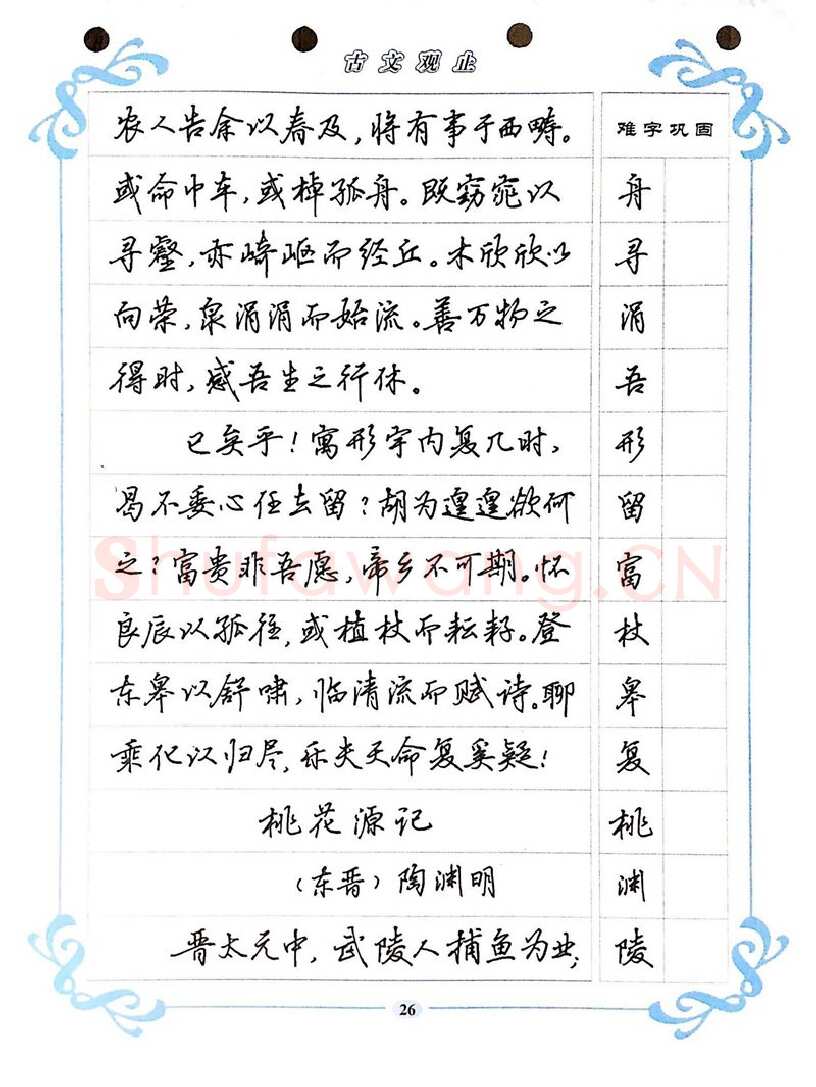 古文观止
农人告余以春及，将有事于西畴。
难字巩固
或命巾车，或棹孤舟。既窈窕以
舟
寻壑，亦崎岖而经丘。木欣欣以
寻
向荣，泉涓涓而始流。善万物之
涓
得时，感吾生之行休。
吾
已矣乎！寓形宇内复几时，
形
曷不委心任去留？胡为遑遑欲何
留
之？富贵非吾愿，帝乡不可期。怀
富
良辰以孤往，或植杖而耘耔。登
杖
东皋以舒啸，临清流而赋诗。聊
皋
乘化以归尽，乐夫天命复奚疑！
复
桃花源记
桃
（东晋）陶渊明
渊
晋太元中，武陵人捕鱼为业；
陵
26
Shufawang.CN